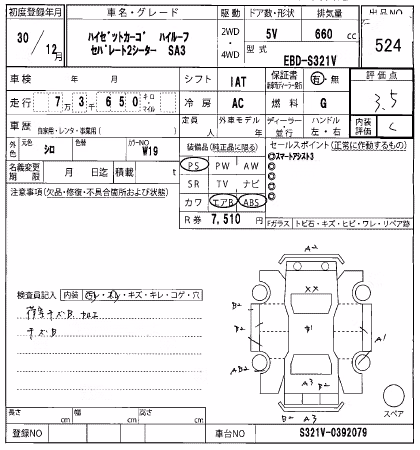 初度登録年月 車名・グレード 駆動 ドア数・形状 排気量 出品NO
30/12月 ハイゼットカーゴ ハイルーフ セパレート2シーター SA3 2WD・4WD 5V 660 cc 524
型式 EBD-S321V
車検 年 月 シフト IAT 保証書 有・無 評価点 3.5
走行 7万3千650 キロ・マイル 冷房 AC 燃料 G
車歴 自家用・レンタ・事業用( ) 定員 人 外車モデル 年 ディーラー・並行 ハンドル 左・右 内装評価 C
外色 元色 シロ 色替 カラーNO W19
装備品(純正品に限る) セールスポイント(正常に作動するもの)
名義変更期限 月 日迄 積載 t
PS PW AW
◎スマートアシスト3
◎
◎
◎
◎
SR TV ナビ
カワ エアB ABS
R券 7,510 円
注意事項(欠品・修復・不具合箇所および状態)
Fガラス トビ石・キズ・ヒビ・ワレ・リペア跡
A2
XX
B2
B2
A1
AB2
A3
B2
B2 A3
スペア
検査員記入 内装 汚レ・スレ・キズ・キレ・コゲ・穴
長さ cm 幅 cm 高さ cm
登録NO 車台NO S321V-0392079